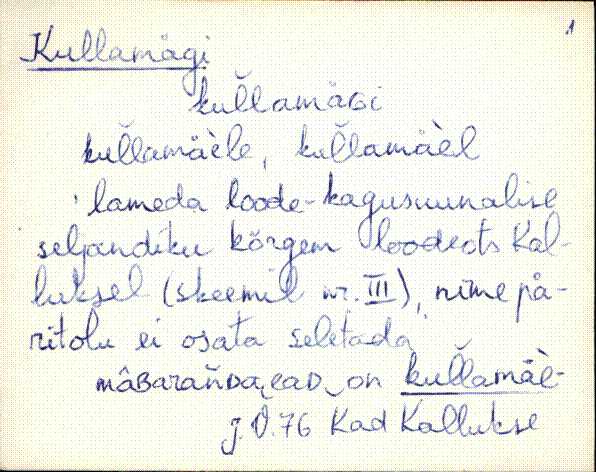 1
Kullamägi
kuĺ̆lamäɢi
kuĺ̆lamäèle, kuĺ̆lamäèl
lameda loode-kagusuunalise
seljandiku kõrgem loodeots Kal-
luksel (skeemil nr. III), nime pä-
ritolu ei osata seletada
on kuĺ̆lamäè-
J. Õ. 76 Kad Kallukse